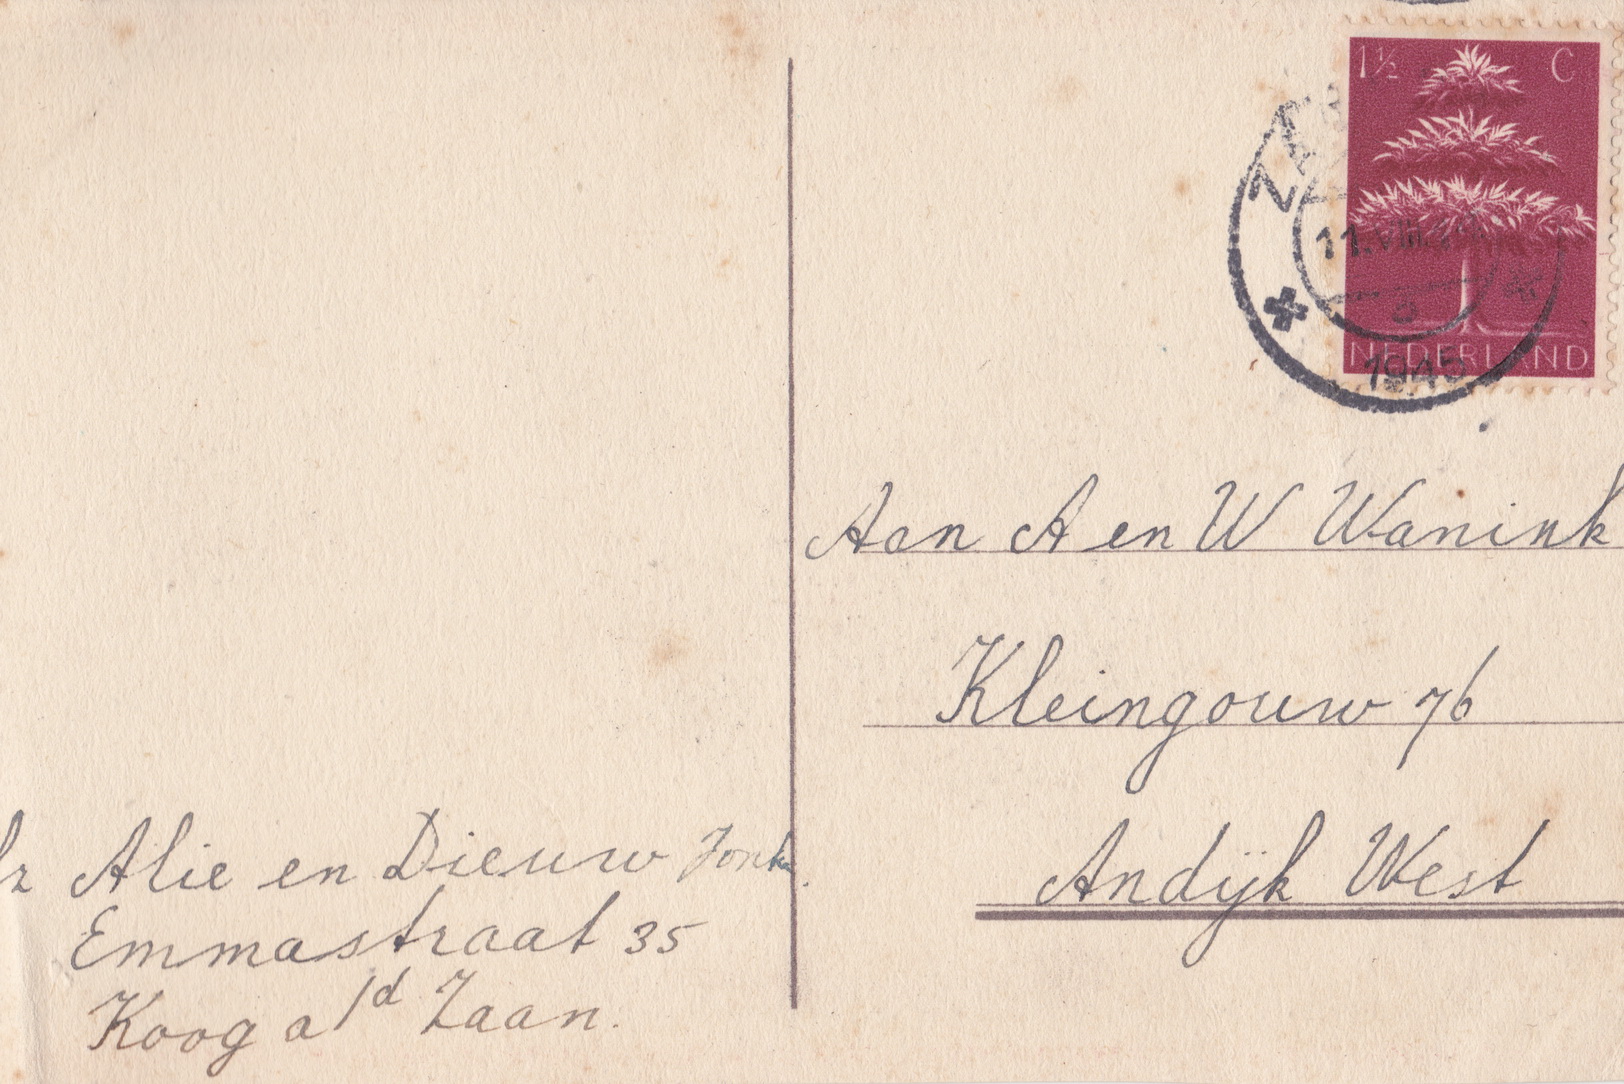 1½ C
11.VIII
NEDERLAND
1945
Aan A en W Wanink
Kleingouw 76
Andijk West
Alie en Dieuw
Emmastraat 35
Koog a/d Zaan.